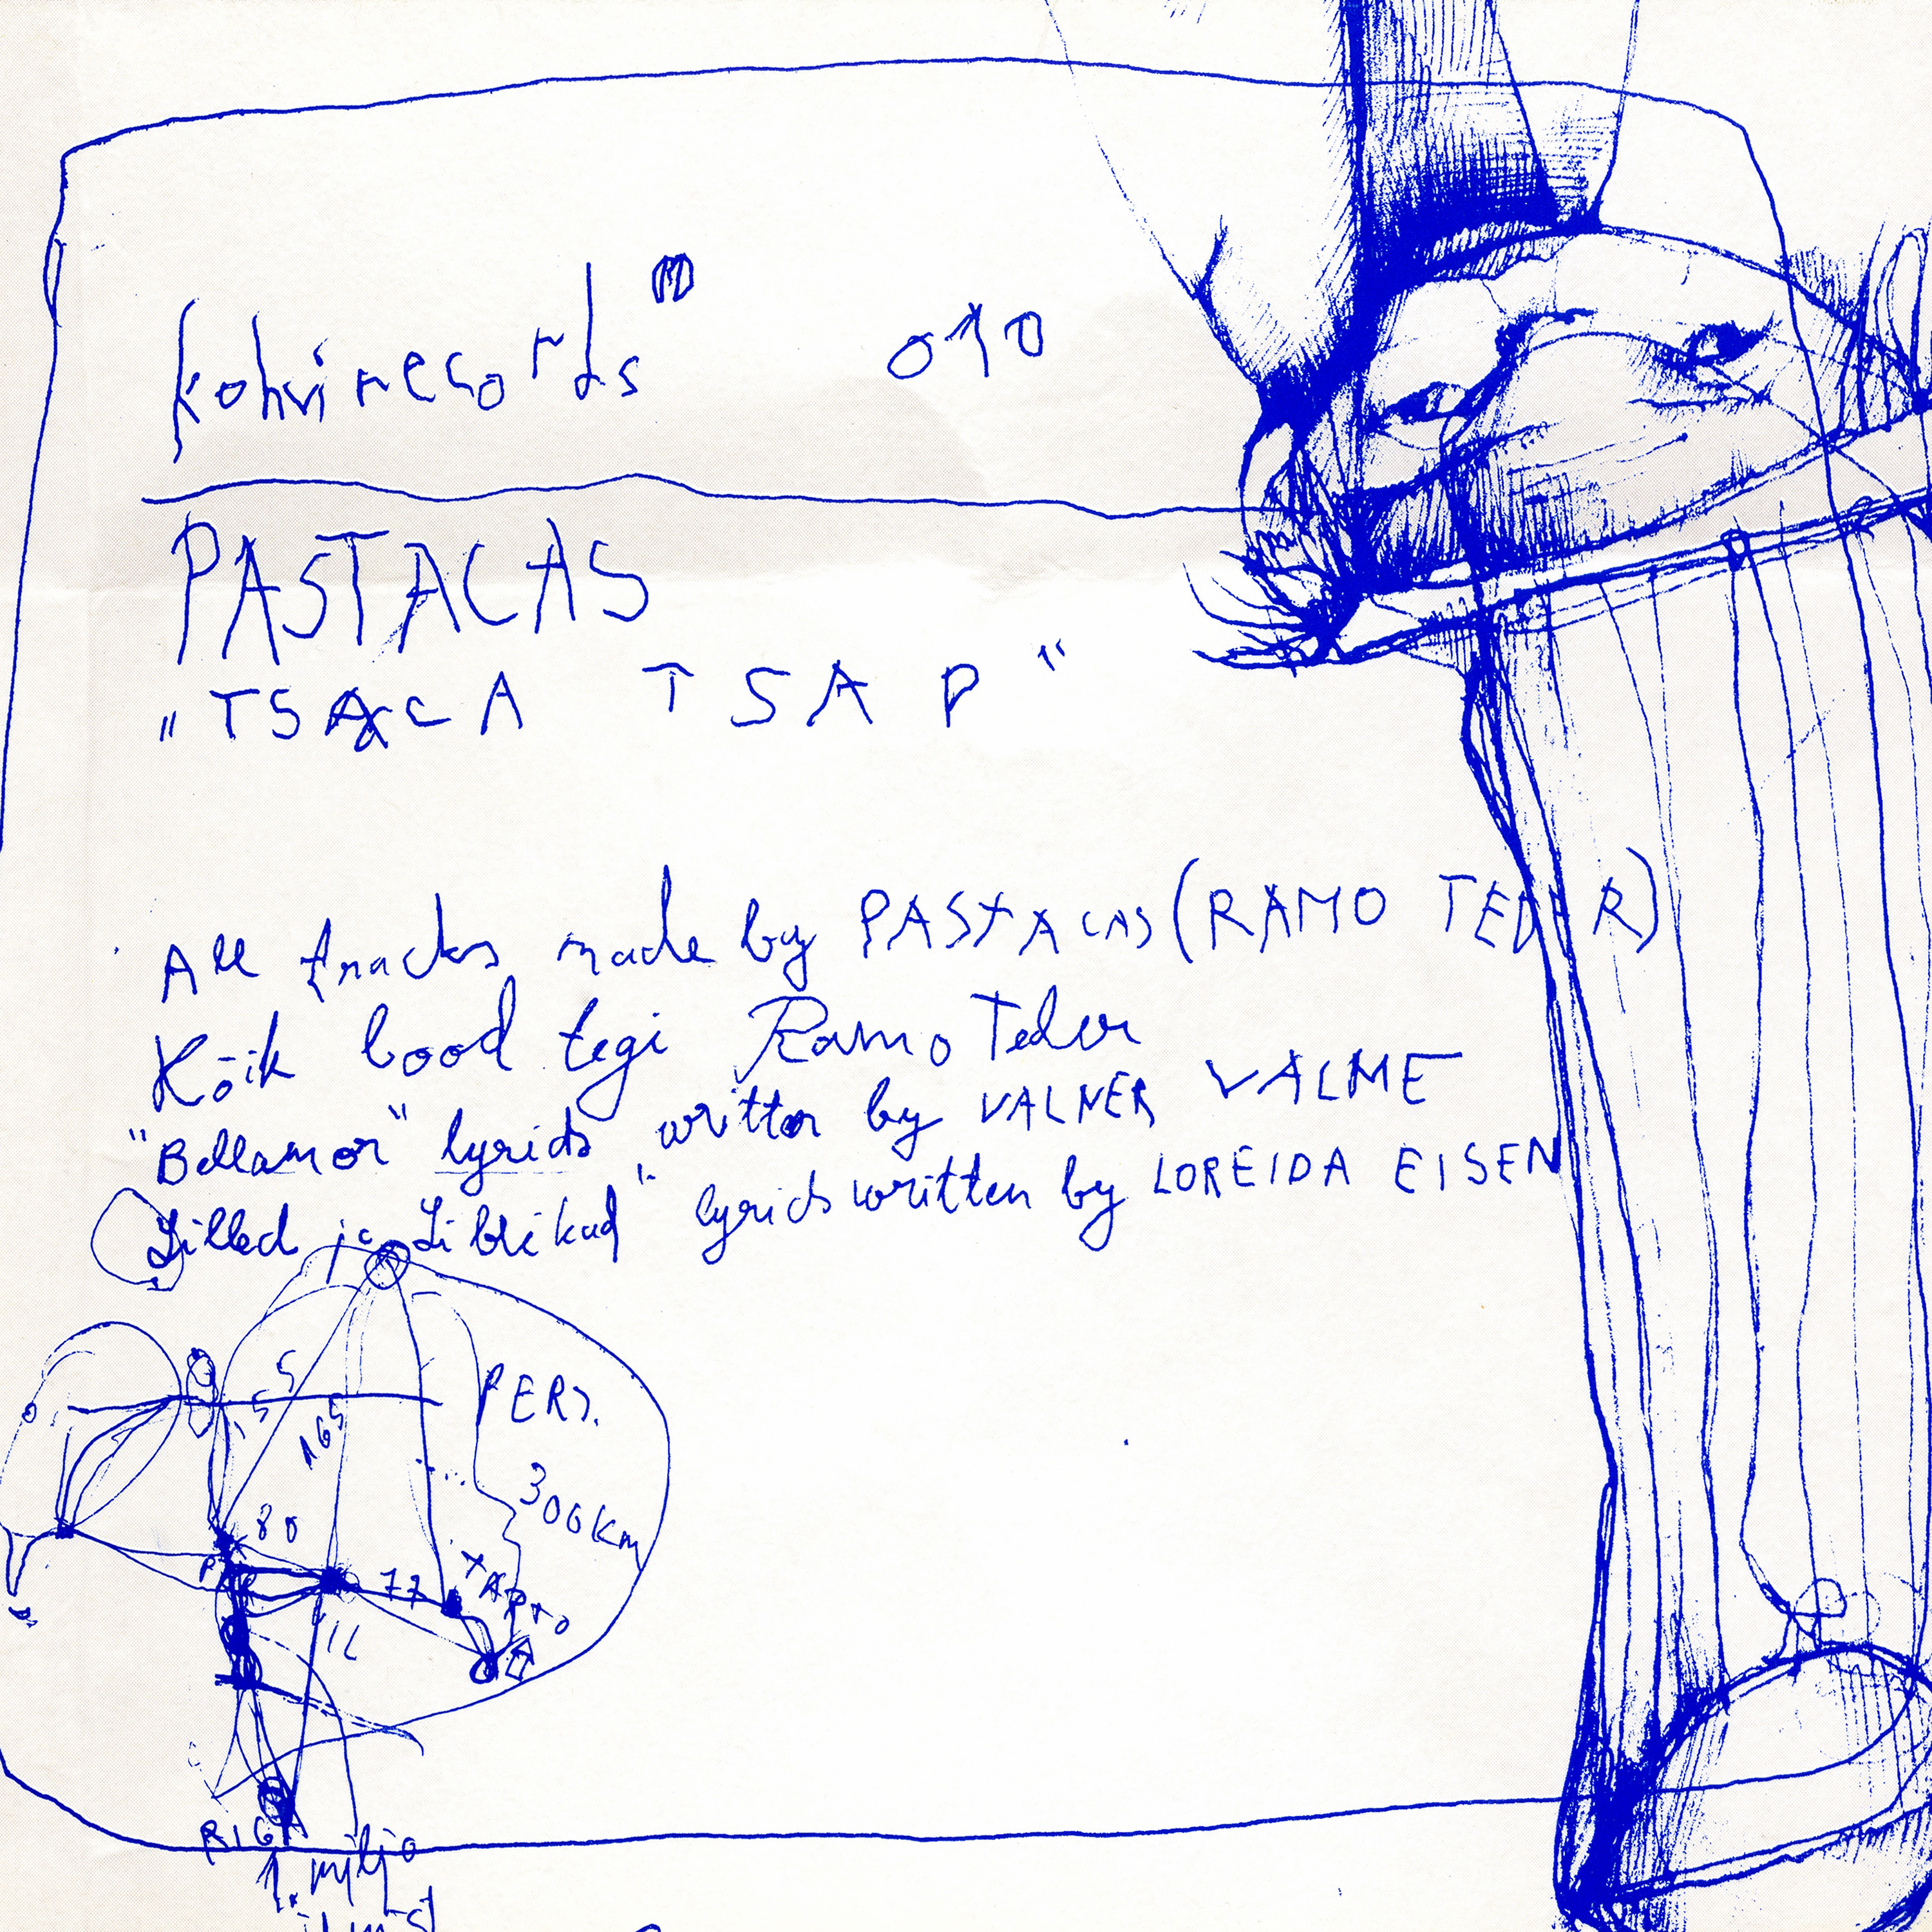 kohvirecords 010
PASTACAS
"TSACA TSAP"
All tracks made by PASTACAS (RAMO TEDER)
Kõik lood tegi Ramo Teder
"Bellamor" lyrics written by VALNER VALME
Lilled ja Liblikad" lyrics written by LOREIDA EISEN
5
165
PERS.
300Km
80
77
RIGA
1. miljo